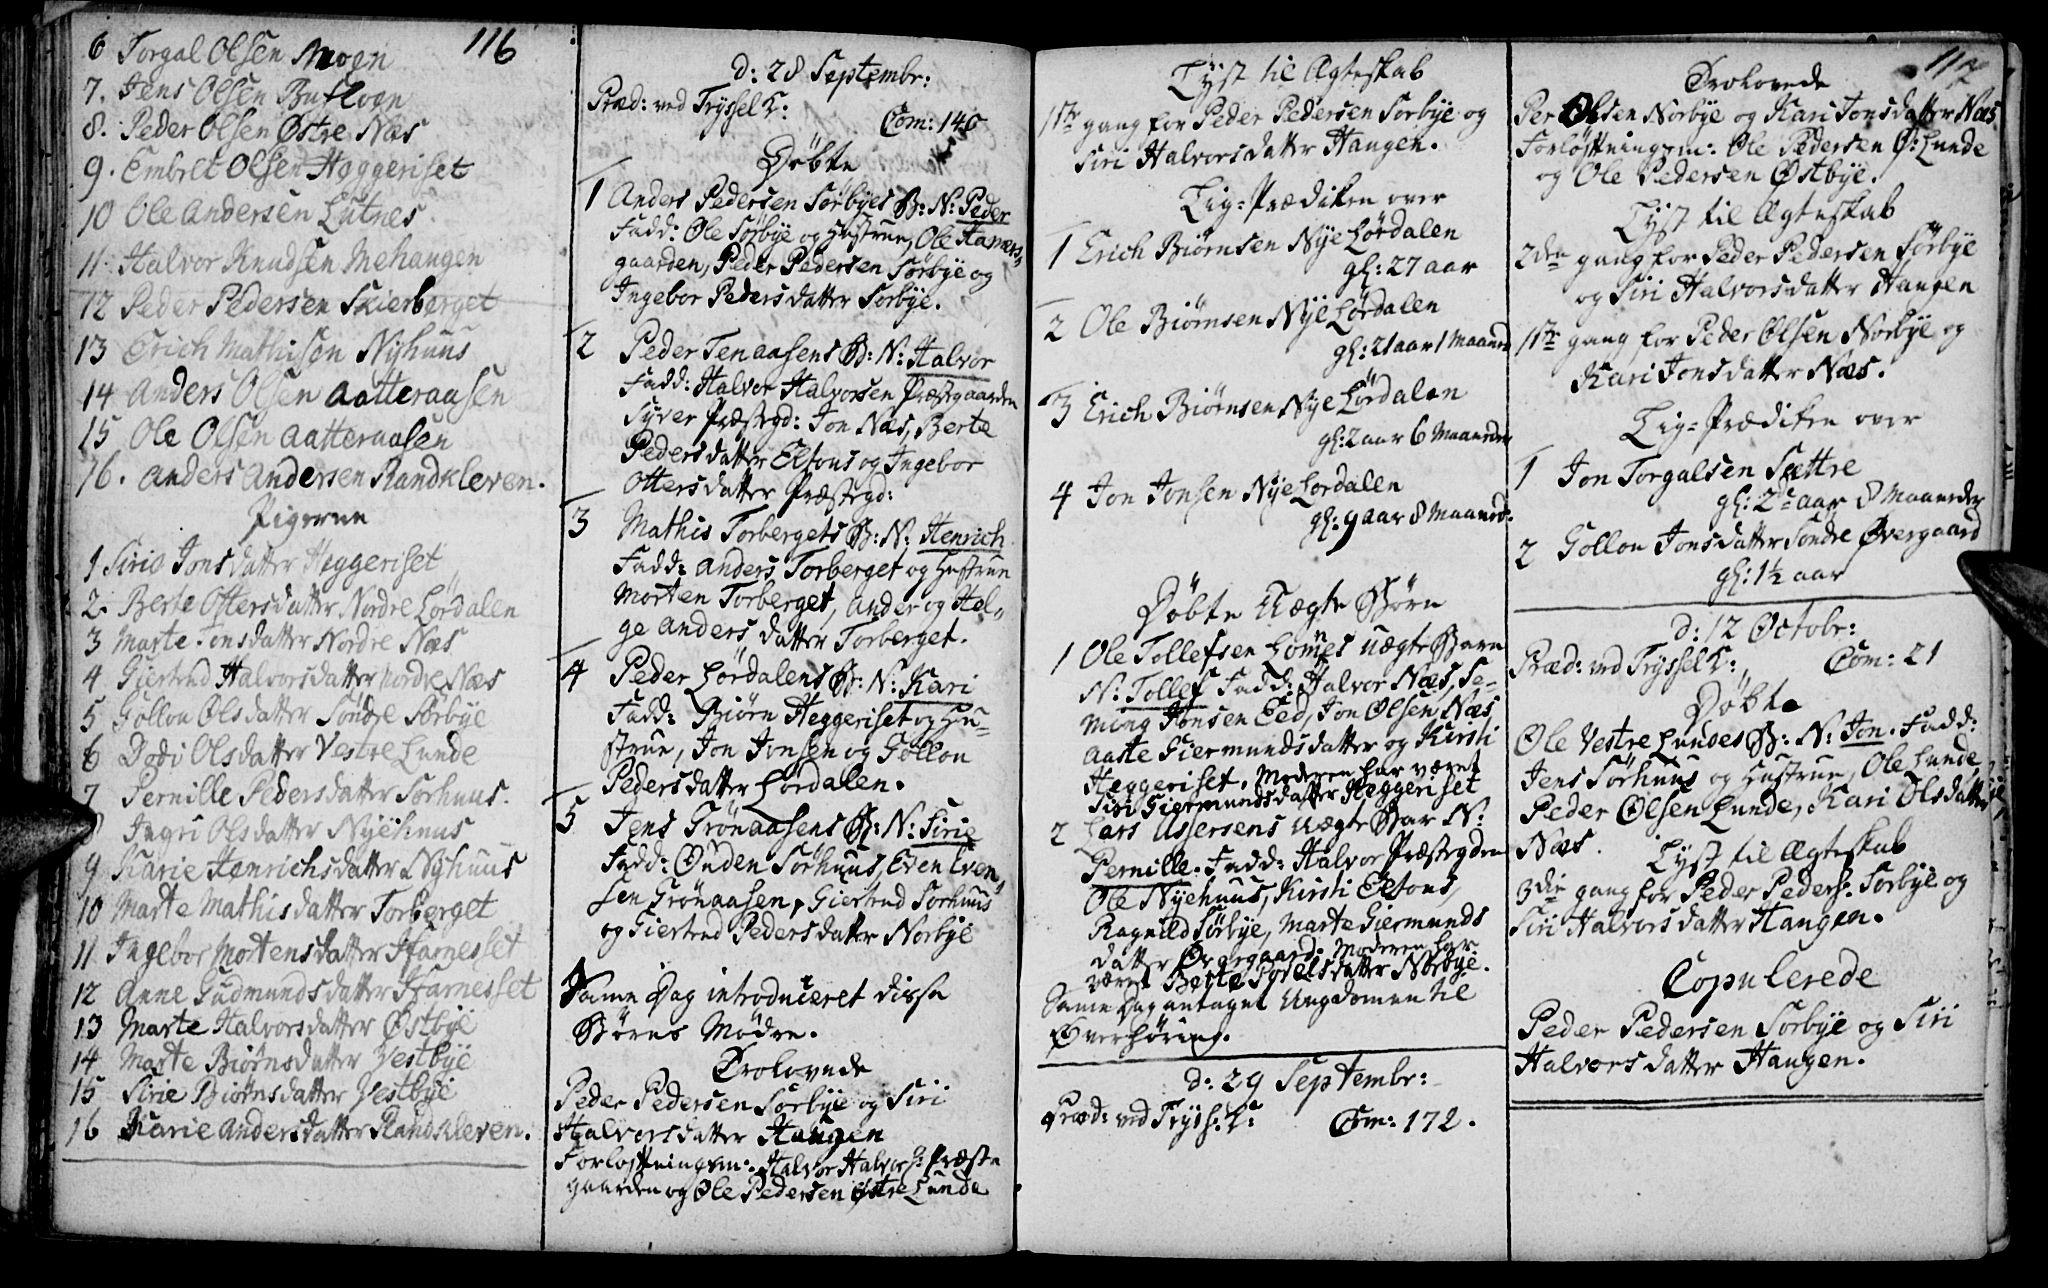 116
6 Torgal Olsen Moen
7. Jens Olsen Bufloen
8. Peder Olsen Østre Næs
9. Embret Olsen Heggeriset
10 Ole Andersen Lutnes.
11. Halvor Knudsen Mehaugen
12 Peder Pedersen Skierberget
13 Erich Mathisen Nyhuus
14 Anders Olsen Aatteraasen
15 Ole Olsen Aatteraasen
16. Anders Andersen Randkleven.
Pigerne
1 Sirie Jonsdatter Heggeriset
2. Berte Ottersdatter Nordre Lördalen
3 Marte Jonsdatter Nordre Næs
4 Giertrud Halvorsdatter Nordre Næs
5 Gollou Olsdatter Söndre Sörbÿe
6 Dodi Olsdatter Vestre Lunde
7 Pernille Pedersdatter Sörhuus.
8 Ingri Olsdatter Nÿehuus
9 Karie Henrichsdatter Nÿhuus
10 Marte Mathisdatter Torberget
11 Ingebor Mortensdatter Hfarnesset
12 Anne Gudmundsdatter Hfarnesset
13 Marte Halvorsdatter Østbÿe
14 Marte Biörnsdatter Vestbÿe
15 Sirie Biörnsdatter Vestbÿe
16 Karie Andersdatter Randkleven.
d: 28 Septembr:
Præd: ved Tryssel K: Com: 140
Döbte
1 Anders Pedersen Sörbyes B: N: Peder
Fadd: Ole Sörbye og Hustrue, Ole Hammers-
gaarden, Peder Pedersen Sörbÿe og
Ingebor Pedersdatter Sörbye.
2 Peder Tenaasens B: N: Halvor
Fadd: Halvor Halvorsen Præstgaarden
Syver Præstgd: Jon Næs, Berte
Pedersdatter Eltons og Ingebor
Ottersdatter Præstegd:
3 Mathis Torbergets B: N: Henrich
Fadd: Anders Torberget og Hustrue
Morten Torberget, Ander og Hel-
ge Andersdatter Torberget.
4 Peder Lördalens B: N: Kari
Fadd: Biörn Heggeriset og Hu-
strue, Jon Jonsen og Gollou
Pedersdatter Lördalen.
5 Jens Grönaasens B: N: Sirie
Fadd: Ouden Sörhuus, Even Even-
sen Grönaasen, Giertrud Sörhuus
og Giertrud Pedersdatter Norbye
Same Dag introduceret disse
Börns Mödre.
Trolovede
Peder Pedersen Sörbÿe og Siri
Halvorsdatter Haugen
Forlöftningsm: Halvor Halvors: Præste
gaarden og Ole Pedersen Østre Lunde
Lyst til Ægteskab
1ste gang for Peder Pedersen Sörbÿe og
Siri Halvorsdatter Haugen.
Lig-Prædiken over
1 Erich Biörnsen Nye Lördalen
gl: 27 aar
2 Ole Biörnsen Nye Lördalen
gl: 21 aar 1 Maaned
3 Erich Biörnsen Nye Lördalen
gl: 2 aar 6 Maaneder
4 Jon Jonsen Nye Lördalen
gl: 9 aar 8 Maaned:
Döbte Uægte Börn
1 Ole Tollefsen Lomes uægte Barn
N: Tollef Fadd: Halvor Næs, Fe-
ming Jonsen Eed, Jon Olsen Næs
Aaste Giermundsdatter og Kirsti
Heggeriset, Moderen har været
Siri Giermundsdatter Heggeriset
2 Lars Assersens Uægte Bar N:
Pernille. Fadd: Halvor Præstegden
Ole Nÿehuus, Kirsti Eltons,
Ragnild Sörbye, Marte Giermunds
datter Øvergaard: Moderen har
været Berte Poelsdatter Norbÿe.
Same Dag antaget Ungdomen til
Overhöring.
d: 29 Septembr:
Præd: ved Tryss: K: Com: 172.
117
Trolovede
Per Olsen Norbye og Kari Jonsdatter Næs
Forlöftningsm: Ole Pedersen Ø: Lunde
og Ole Pedersen Østbye.
Lyst til Ægteskab
2den gang for Peder Pedersen Sörbÿe
og Siri Halvorsdatter Haugen
1ste gang for Peder Olsen Norbÿe og
Kari Jonsdatter Næs.
Lig-Prædiken over
1 Jon Torgalsen Sættre
gl: 2 aar 8 Maaneder
2 Gollou Jonsdatter Söndre Øvergaard
gl: 1½ aar
d: 12 Octobr:
Præd: ved Tryssel K: Com: 21
Döbte
Ole Vestre Lundes B: N: Jon. Fadd:
Jens Sörhuus og Hustrue, Ole Lunde
Peder Olsen Lunde, Kari Olsdatter
Næs.
Lyst til Ægteskab
3die gang for Peder Peders: Sörbÿe og
Siri Halvorsdatter Haugen.
Copulerede
Peder Pedersen Sörbÿe og Siri
Halvorsdatter Haugen.